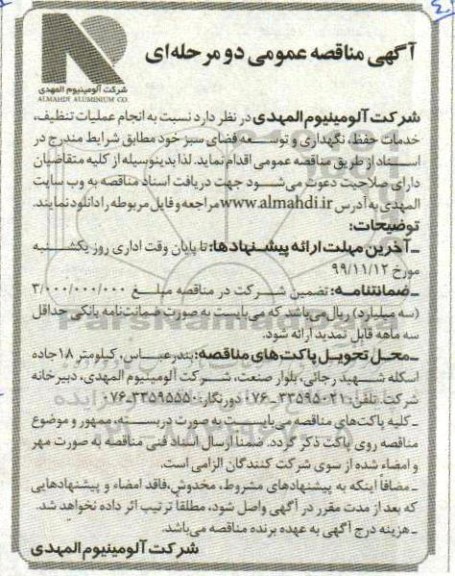 آگهی مناقصه عمومی دو مرحله‌ای
شرکت آلومینیوم المهدی
ALMAHDI ALUMINIUM CO.
شرکت آلومینیوم المهدی در نظر دارد نسبت به انجام عملیات تنظیف،
خدمات حفظ، نگهداری و توسعه فضای سبز خود مطابق شرایط مندرج در
اسناد از طریق مناقصه عمومی اقدام نماید. لذا بدینوسیله از کلیه متقاضیان
دارای صلاحیت دعوت می‌شود جهت دریافت اسناد مناقصه به وب سایت
المهدی به آدرس www.almahdi.ir مراجعه و فایل مربوطه را دانلود نمایند.
توضیحات:
ـ آخرین مهلت ارائه پیشنهادها: تا پایان وقت اداری روز یکشنبه
مورخ ۹۹/۱۱/۱۲
ـ ضمانتنامه: تضمین شرکت در مناقصه مبلغ ۳/۰۰۰/۰۰۰/۰۰۰
(سه میلیارد) ریال می‌باشد که می‌بایست به صورت ضمانت‌نامه بانکی حداقل
سه ماهه قابل تمدید ارائه شود.
ـ محل تحویل پاکت‌های مناقصه: بندرعباس، کیلومتر ۱۸ جاده
اسکله شهید رجائی، بلوار صنعت، شرکت آلومینیوم المهدی، دبیرخانه
شرکت. تلفن: ۳۳۵۹۵۰۲۱-۰۷۶ دورنگار: ۳۳۵۹۵۵۵۰-۰۷۶
ـ کلیه پاکت‌های مناقصه می‌بایست به صورت دربسته، ممهور و موضوع
مناقصه روی پاکت ذکر گردد. ضمنا ارسال اسناد فنی مناقصه به صورت مهر
و امضاء شده از سوی شرکت کنندگان الزامی است.
ـ مضافا اینکه به پیشنهادهای مشروط، مخدوش، فاقد امضاء و پیشنهادهایی
که بعد از مدت مقرر در آگهی واصل شود، مطلقا ترتیب اثر داده نخواهد شد.
ـ هزینه درج آگهی به عهده برنده مناقصه می‌باشد.
شرکت آلومینیوم المهدی